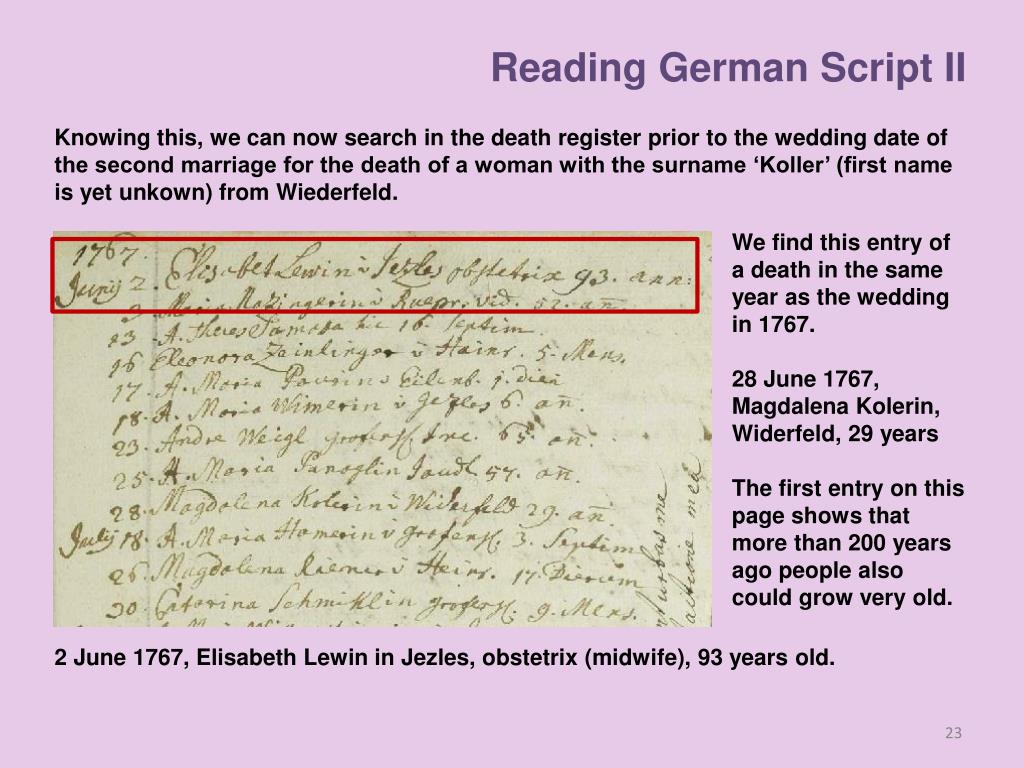 Reading German Script II
Knowing this, we can now search in the death register prior to the wedding date of
the second marriage for the death of a woman with the surname ‘Koller’ (first name
is yet unkown) from Wiederfeld.
1767.
Junij 2. Elisabet Lewin v Jezles obstetrix 93. ann:
3 Maria vid. 52. añ.
13 A. Theres hic 16. Septim.
16 Eleonora Zeinlinger v Hainr. 5. Mens.
17. A. Maria 1. dieii
18. A. Maria Wimerin v Jezles 6. añ.
23. Andre Weigl grofersch. 65. añ.
25. A. Maria 57. añ.
28. Magdalena Kolerin v Widerfeld 29. añ.
Julij 18. A. Maria Hamerin v grofersch. 3. Septim
26. Magdalena v Heinr. 17. Dierum
30. Catarina Schmiklin grofersch. 9. Mens.
We find this entry of
a death in the same
year as the wedding
in 1767.
28 June 1767,
Magdalena Kolerin,
Widerfeld, 29 years
The first entry on this
page shows that
more than 200 years
ago people also
could grow very old.
2 June 1767, Elisabeth Lewin in Jezles, obstetrix (midwife), 93 years old.
23